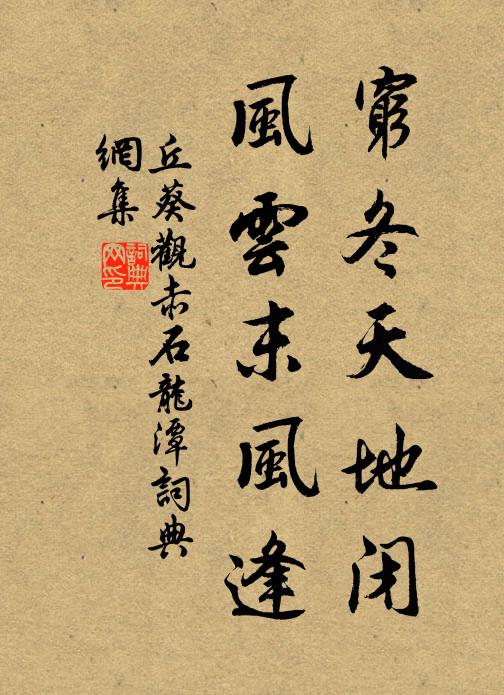 窮冬天地閉
風雲未風逢
丘葵觀赤石龍潭詞典
網集
詞典
网印